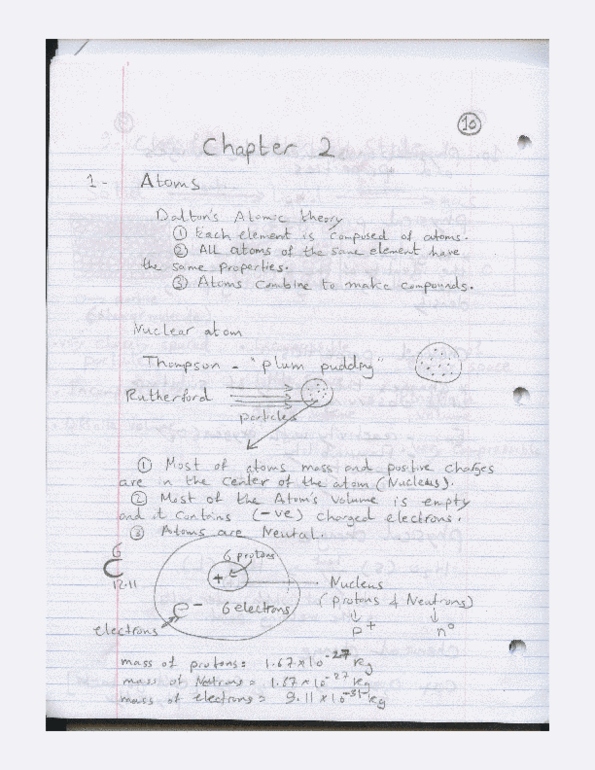 10
Chapter 2
1- Atoms
Dalton's Atomic theory
① Each element is composed of atoms.
② All atoms of the same element have
the same properties.
③ Atoms combine to make compounds.
Nuclear atom
Thompson - "plum pudding"
Rutherford
particles
① Most of atoms mass and positive charges
are in the center of the atom (Nucleus).
② Most of the Atom's volume is empty
and it contains (-ve) charged electrons.
③ Atoms are Neutal.
6
C
12.11
6 protons
+
e-
6 electrons
electrons
Nucleus
(protons & Neutrons)
p+ n°
mass of protons = 1.67 x 10^-27 kg
mass of Neutrons = 1.67 x 10^-27 kg
mass of electrons = 9.11 x 10^-31 kg